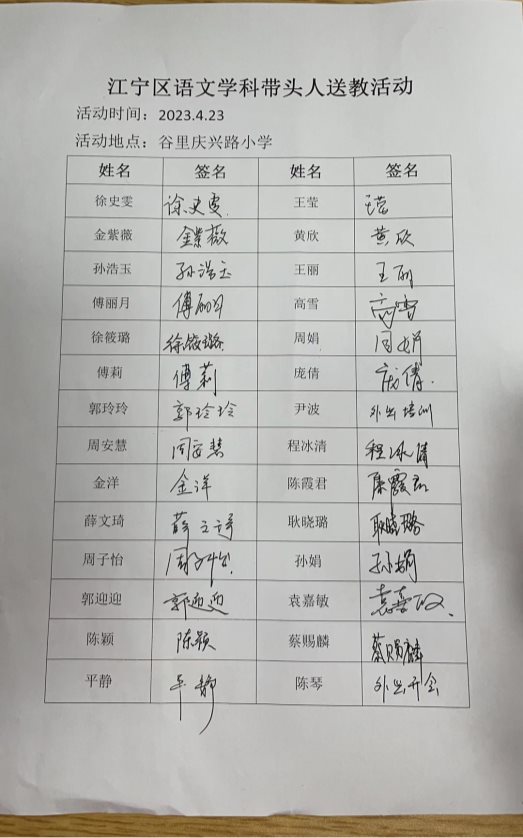 江宁区语文学科带头人送教活动
活动时间：2023.4.23
活动地点：谷里庆兴路小学
姓名 签名 姓名 签名
徐史雯 徐史雯 王莹 王莹
金紫薇 金紫薇 黄欣 黄欣
孙浩玉 孙浩玉 王丽 王丽
傅丽月 傅丽月 高雪 高雪
徐筱璐 徐筱璐 周娟 周娟
傅莉 傅莉 庞倩 庞倩
郭玲玲 郭玲玲 尹波 外出培训
周安慧 周安慧 程冰清 程冰清
金洋 金洋 陈霞君 陈霞君
薛文琦 薛文琦 耿晓璐 耿晓璐
周子怡 周子怡 孙娟 孙娟
郭迎迎 郭迎迎 袁嘉敏 袁嘉敏
陈颖 陈颖 蔡赐麟 蔡赐麟
平静 平静 陈琴 外出开会